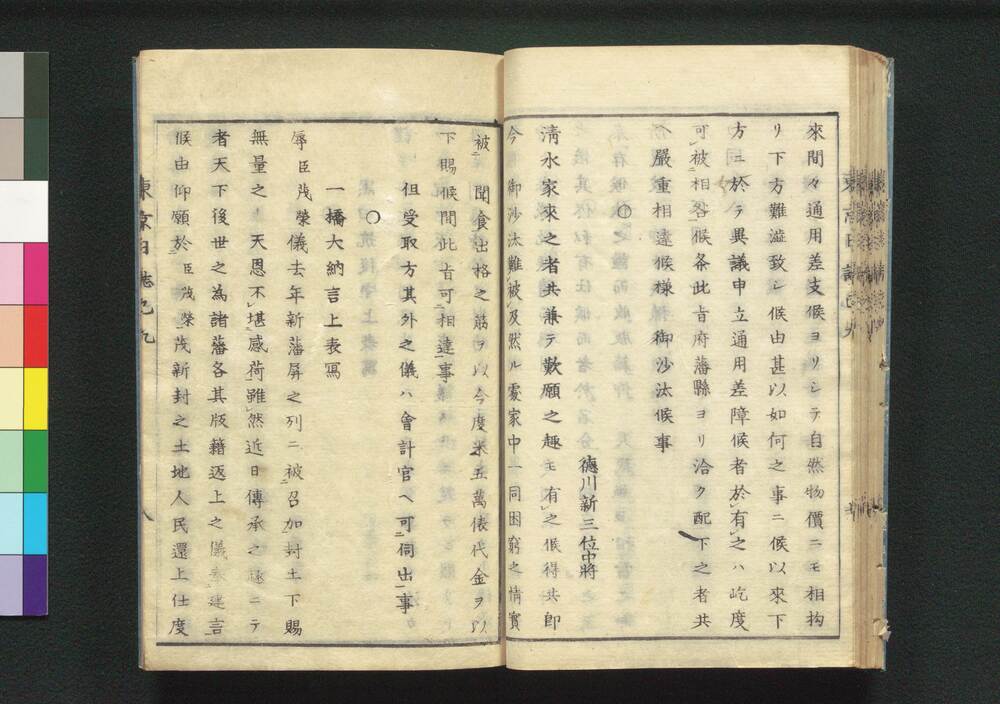 來間々通用差支候ヨリシテ自然物價ニモ相拘
リ下方難澁致シ候由甚以如何之事ニ候以來下
方ニ於テ異議申立通用差障候者於有之ハ屹度
可被相咎候条此旨府藩縣ヨリ洽ク配下之者共
ヘ嚴重相達候様 御沙汰候事
○
德川新三位中將
淸水家來之者共兼テ歎願之趣モ有之候得共即
今 御沙汰難被及然ル處家中一同困窮之情實
被 聞食出格之筋ヲ以今度米五萬俵代金ヲ以
下賜候間此旨可相達事
但受取方其外之儀ハ會計官ヘ可伺出事
○
一橋大納言上表寫
辱臣茂榮儀去年新藩屏之列ニ被召加封土下賜
無量之 天恩不堪感荷雖然近日傳承之趣ニテ
者天下後世之為諸藩各其版籍返上之儀奉建言
候由仰願於臣茂榮茂新封之土地人民還上仕度
東京日誌己九 八